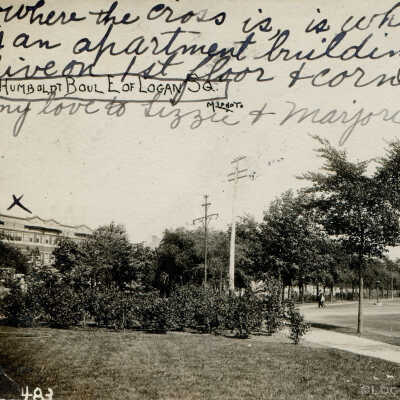 where the cross is, is wh
an apartment buildin
live on 1st floor & corn
HUMBOLDT BOUL E OF LOGAN SQ.
M.L PHOTO
my love to Lizzie & Marjor
X
483
©LOG